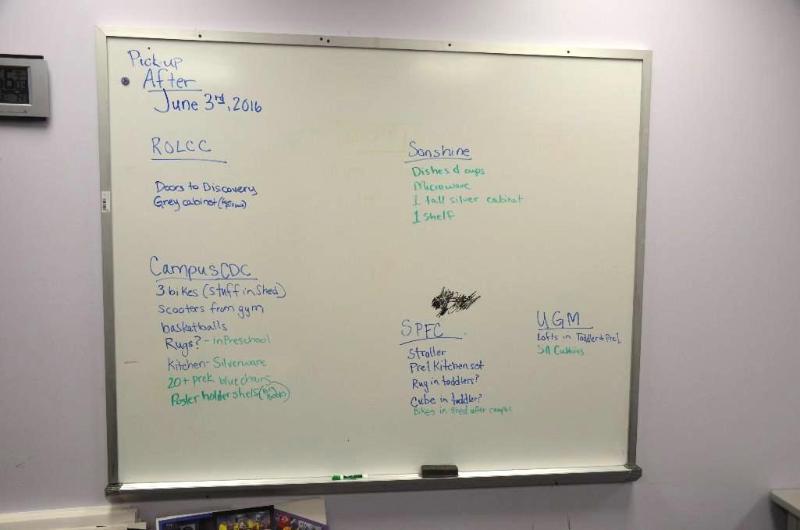 Pickup
After
June 3rd, 2016
ROLCC
Doors to Discovery
Grey cabinet
Sonshine
Dishes & cups
Microwave
1 tall silver cabinet
1 shelf
Campus CDC
3 bikes (stuff in Shed)
Scooters from gym
basketballs
Rugs? - in Preschool
Kitchen - Silverware
20+ prek blue chairs
Poster holder shelfs
SPEC
Stroller
Pre1 Kitchen set
Rug in toddlers?
Cube in toddler?
Bikes in shed after campus
UGM
Lofts in Toddler & Pre1
SA Cubbies